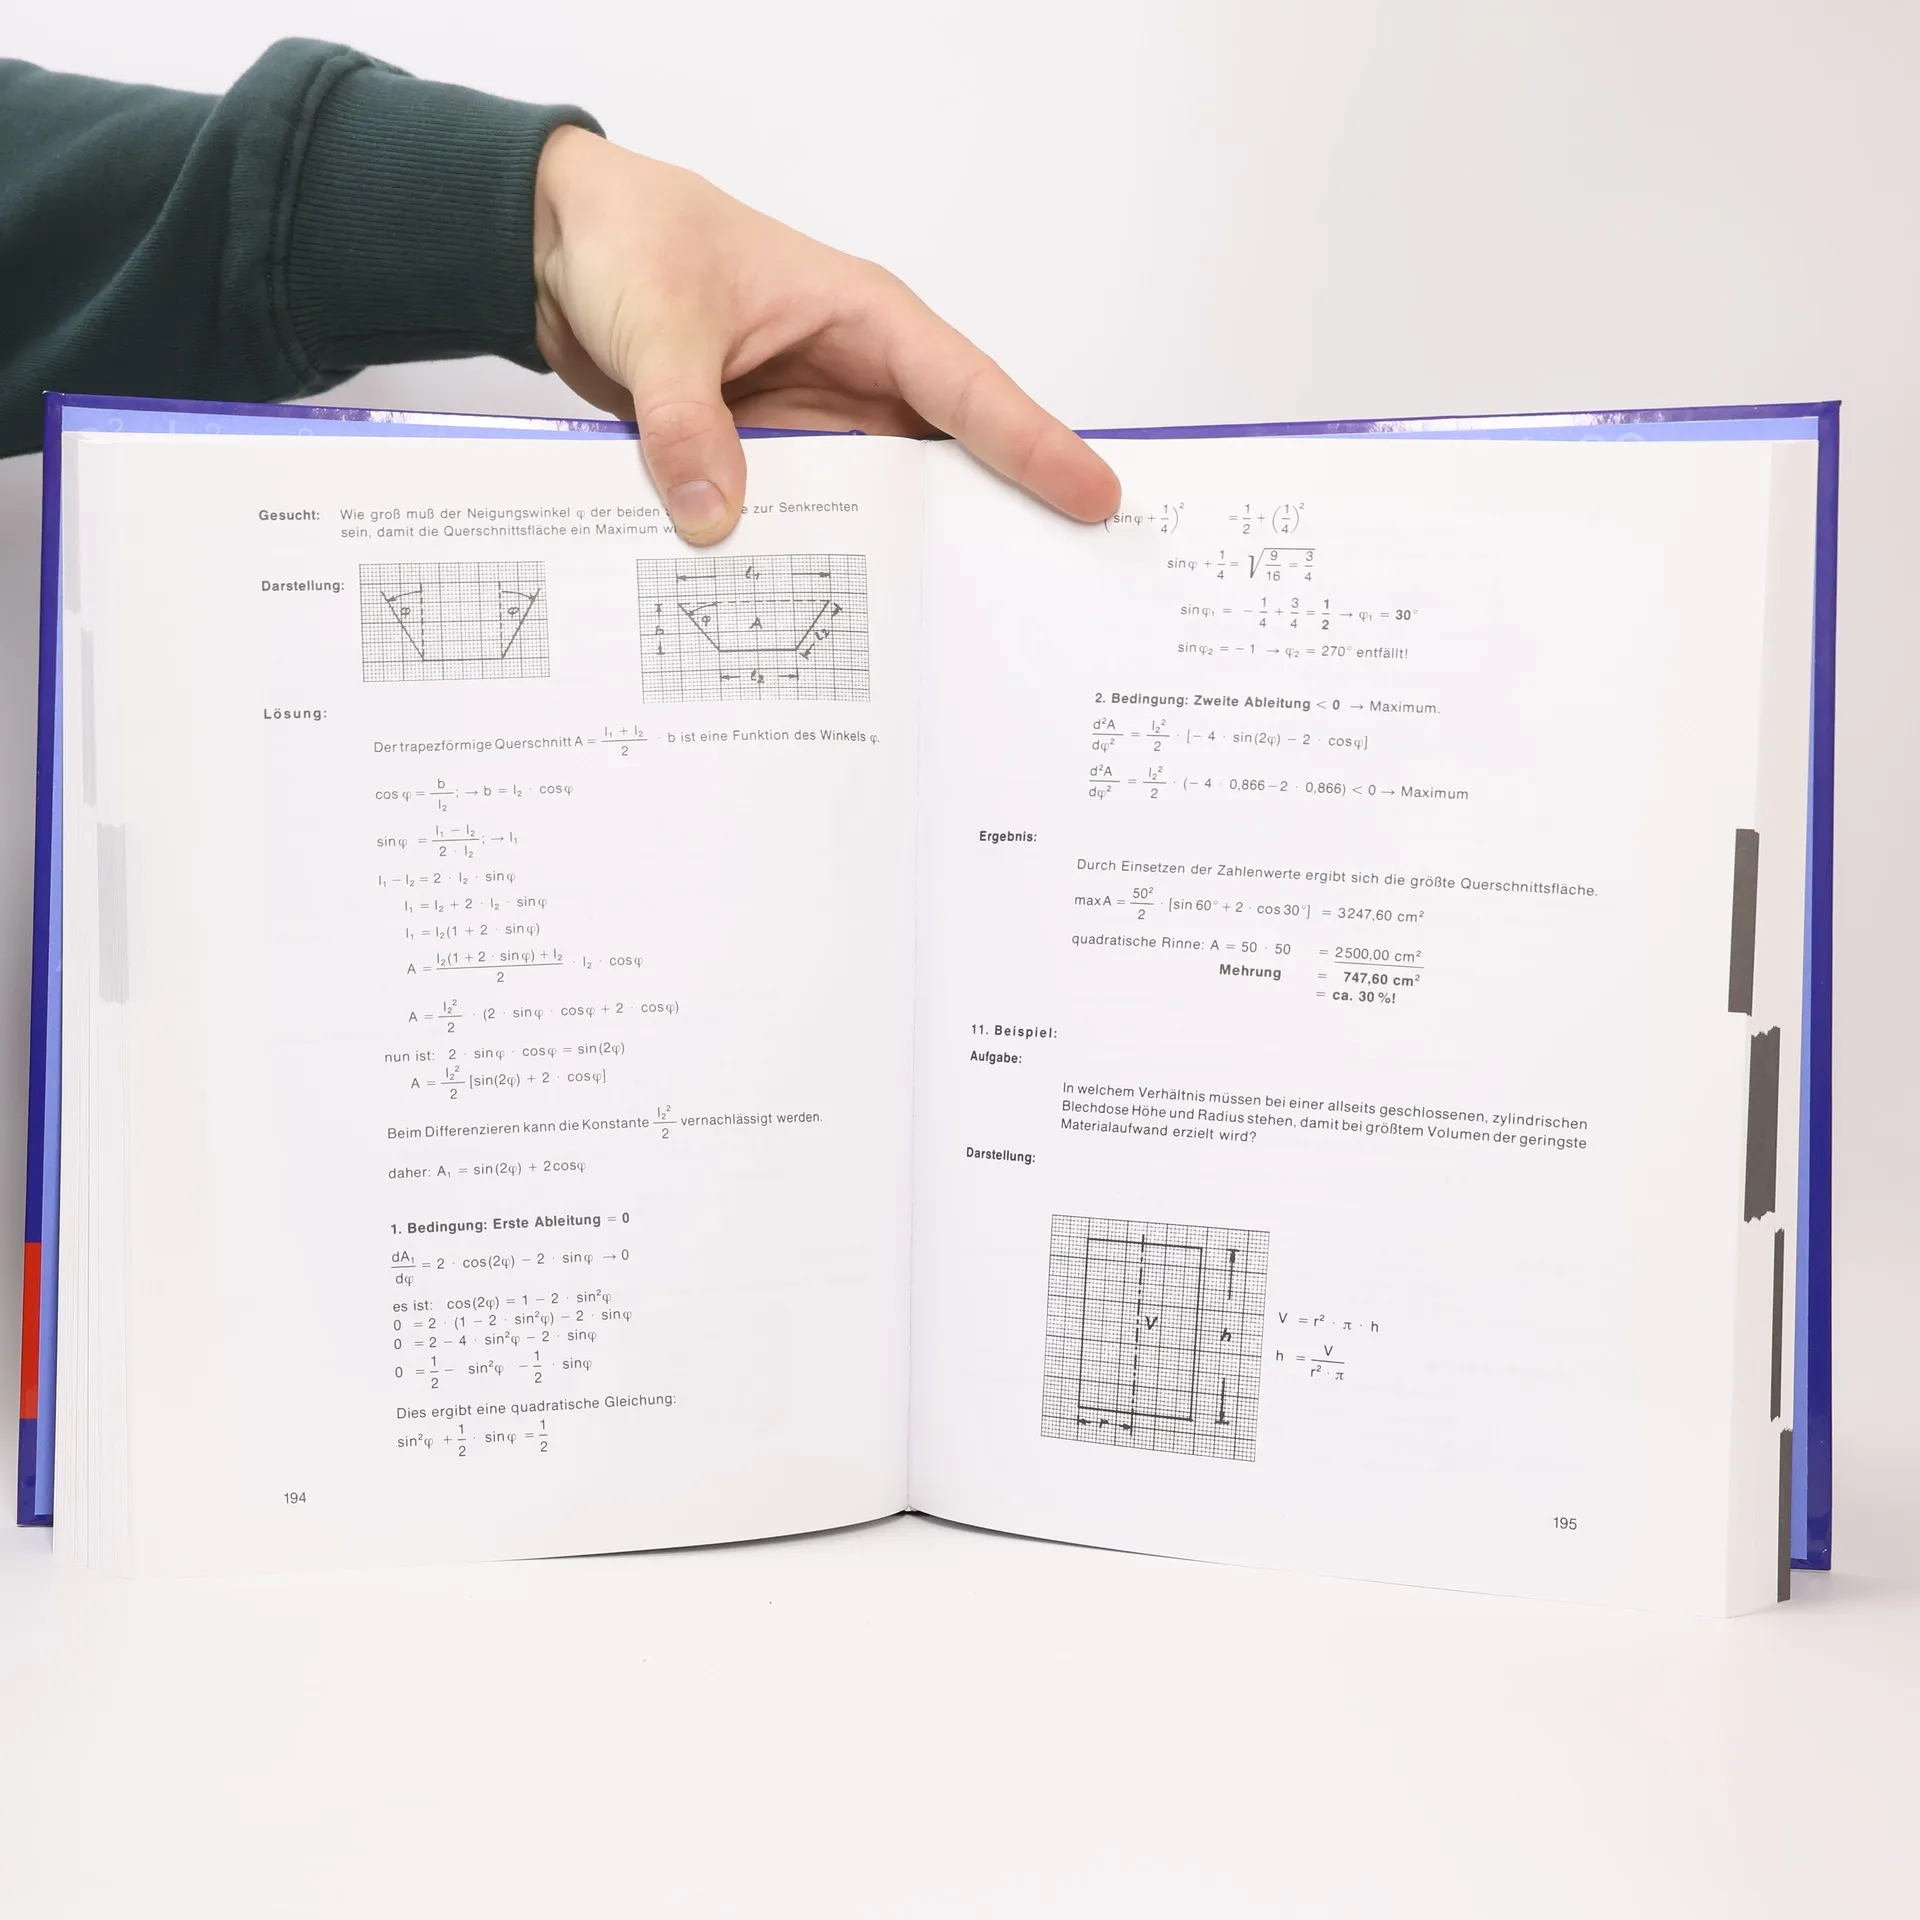 Gesucht: Wie groß muß der Neigungswinkel φ der beiden zur Senkrechten
sein, damit die Querschnittsfläche ein Maximum
Darstellung:
φ φ
l₁
b φ A l₂
l₂
Lösung:
Der trapezförmige Querschnitt A = (l₁ + l₂)/2 · b ist eine Funktion des Winkels φ.
cos φ = b/l₂; → b = l₂ · cosφ
sinφ = (l₁ − l₂)/(2 · l₂); → l₁
l₁ − l₂ = 2 · l₂ · sinφ
l₁ = l₂ + 2 · l₂ · sinφ
l₁ = l₂(1 + 2 · sinφ)
A = (l₂(1 + 2 · sinφ) + l₂)/2 · l₂ · cosφ
A = l₂²/2 · (2 · sinφ · cosφ + 2 · cosφ)
nun ist: 2 · sinφ · cosφ = sin(2φ)
A = l₂²/2 [sin(2φ) + 2 · cosφ]
Beim Differenzieren kann die Konstante l₂²/2 vernachlässigt werden.
daher: A₁ = sin(2φ) + 2cosφ
1. Bedingung: Erste Ableitung = 0
dA₁/dφ = 2 · cos(2φ) − 2 · sinφ → 0
es ist: cos(2φ) = 1 − 2 · sin²φ
0 = 2 · (1 − 2 · sin²φ) − 2 · sinφ
0 = 2 − 4 · sin²φ − 2 · sinφ
0 = 1/2 − sin²φ − 1/2 · sinφ
Dies ergibt eine quadratische Gleichung:
sin²φ + 1/2 · sinφ = 1/2
194
(sinφ + 1/4)² = 1/2 + (1/4)²
sinφ + 1/4 = √(9/16 = 3/4)
sinφ₁ = − 1/4 + 3/4 = 1/2 → φ₁ = 30°
sinφ₂ = − 1 → φ₂ = 270° entfällt!
2. Bedingung: Zweite Ableitung < 0 → Maximum.
d²A/dφ² = l₂²/2 · [− 4 · sin(2φ) − 2 · cosφ]
d²A/dφ² = l₂²/2 · (− 4 · 0,866 − 2 · 0,866) < 0 → Maximum
Ergebnis:
Durch Einsetzen der Zahlenwerte ergibt sich die größte Querschnittsfläche.
maxA = 50²/2 · [sin 60° + 2 · cos 30°] = 3247,60 cm²
quadratische Rinne: A = 50 · 50 = 2500,00 cm²
Mehrung = 747,60 cm²
= ca. 30 %!
11. Beispiel:
Aufgabe:
In welchem Verhältnis müssen bei einer allseits geschlossenen, zylindrischen
Blechdose Höhe und Radius stehen, damit bei größtem Volumen der geringste
Materialaufwand erzielt wird?
Darstellung:
V h
r
V = r² · π · h
h = V/(r² · π)
195